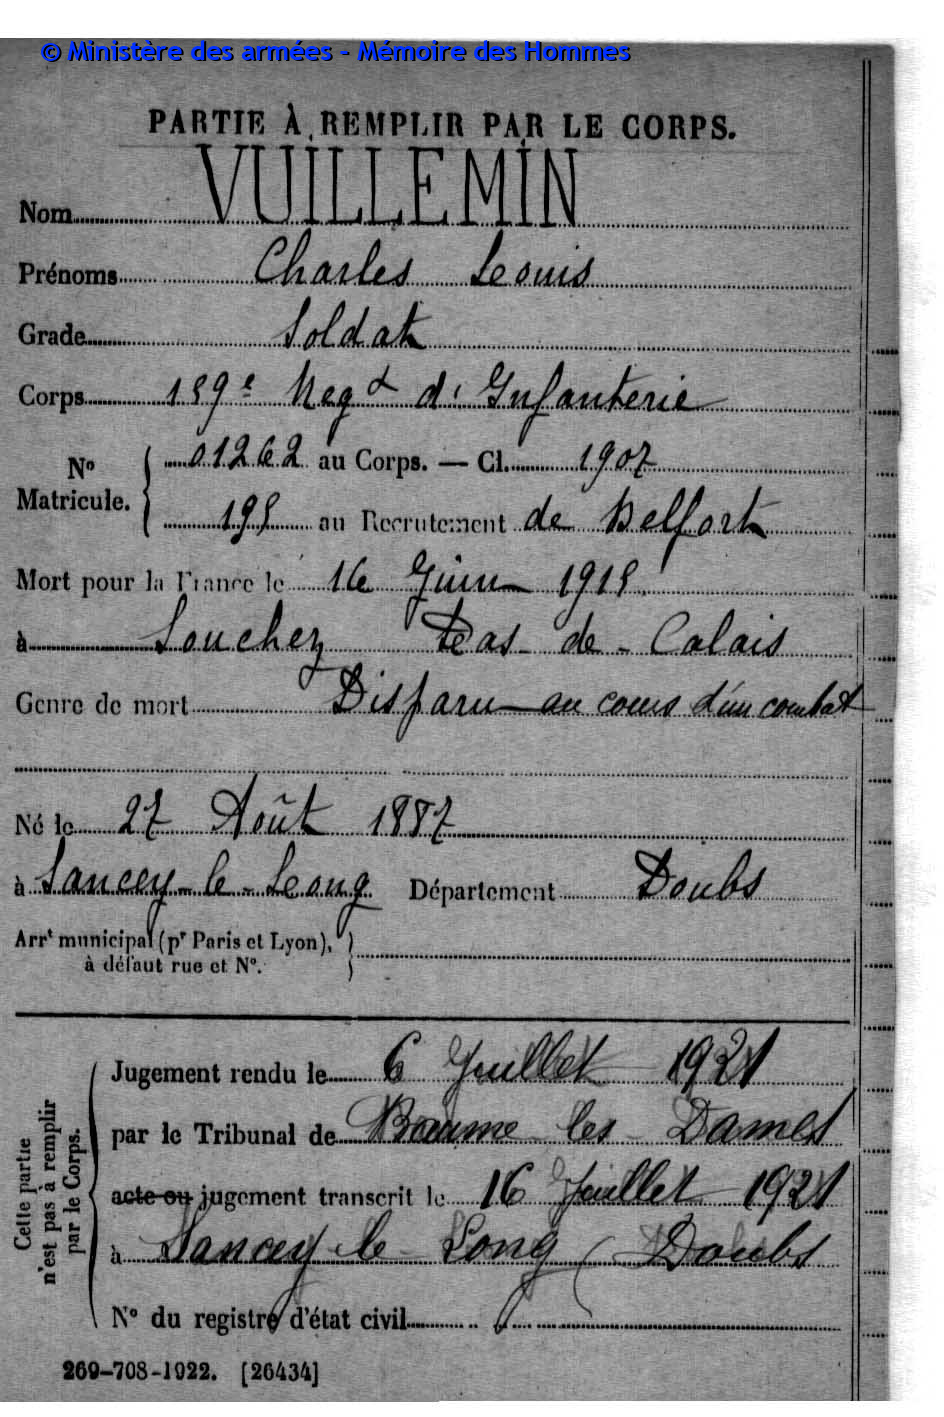 © Ministère des armées - Mémoire des Hommes
PARTIE À REMPLIR PAR LE CORPS.
Nom VUILLEMIN
Prénoms Charles Leouis
Grade Soldat
Corps 159e Regt d'Infanterie
No Matricule. 01262 au Corps. — Cl. 1907
195 au Recrutement de Belfort
Mort pour la France le 16 Juin 1915
à Souchez Pas-de-Calais
Genre de mort Disparu au cours d'un combat
Né le 27 Août 1887
à Sancey-le-Leong Département Doubs
Arrt municipal (pr Paris et Lyon),
à défaut rue et No.
Cette partie n'est pas à remplir par le Corps.
Jugement rendu le 6 Juillet 1921
par le Tribunal de Baume les Dames
acte ou jugement transcrit le 16 Juillet 1921
à Sancey le Long (Doubs
No du registre d'état civil
269-708-1922. [26434]